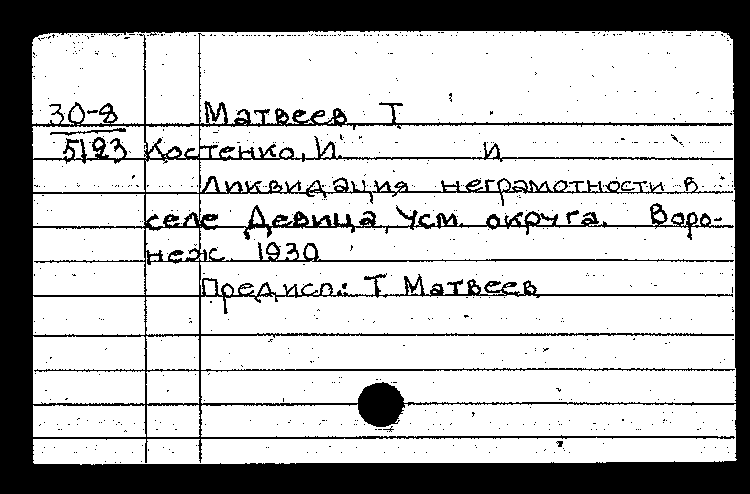 30-8 Матвеев, Т
5123 Костенко, И. и
Ликвидация неграмотности в
селе Девица, Усм. округа. Воро-
неж. 1930
Предисл.: Т. Матвеев